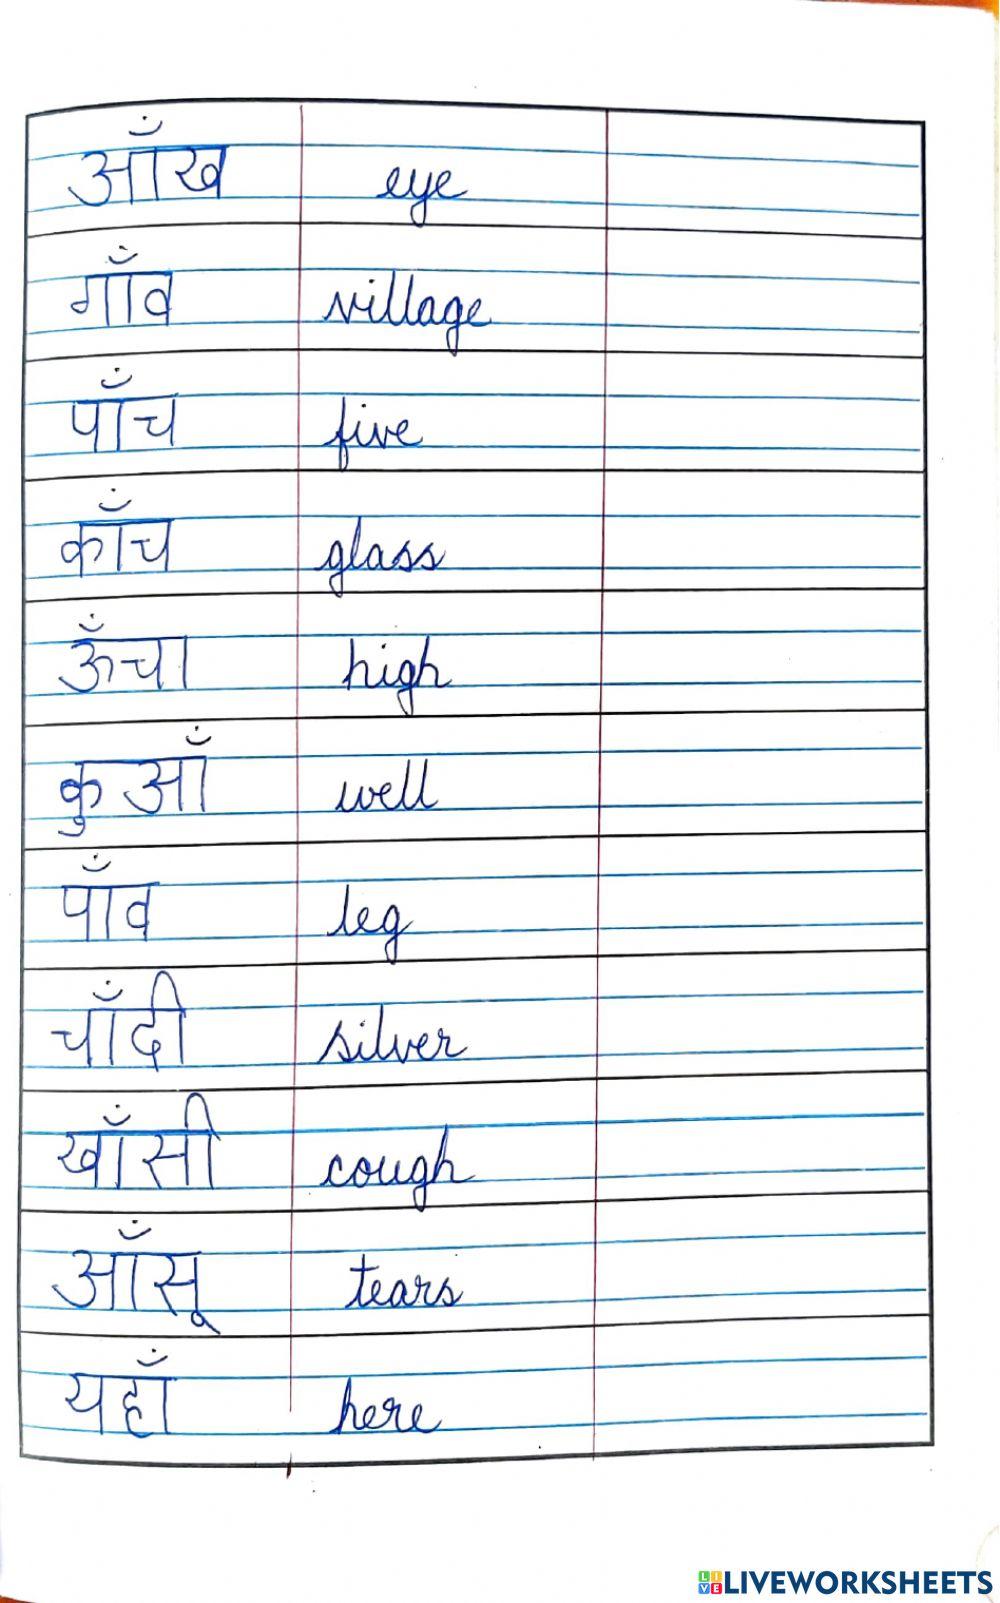 आँख eye
गाँव village
पाँच five
काँच glass
ऊँचा high
कुआँ well
पाँव leg
चाँदी silver
खाँसी cough
आँसू tears
यहाँ here
LIVEWORKSHEETS